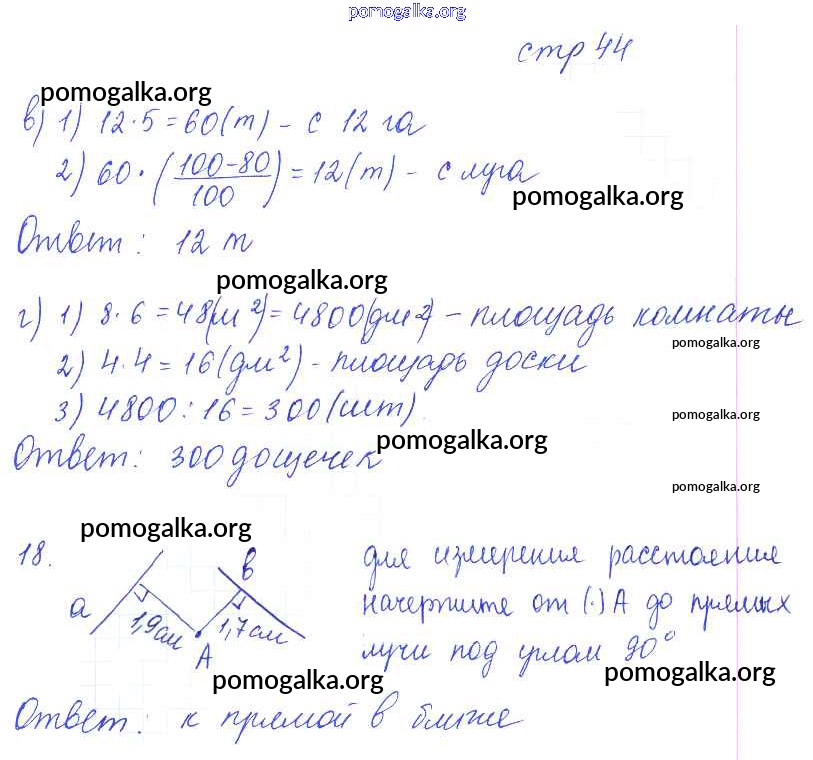 pomogalka.org
стр 44
pomogalka.org
в) 1) 12·5=60(т) - с 12 га
2) 60·(100-80/100)=12(т) - с луга
pomogalka.org
Ответ: 12 т
pomogalka.org
г) 1) 8·6=48(м²)=4800(дм²) - площадь комнаты
pomogalka.org
2) 4·4=16(дм²) - площадь доски
3) 4800:16=300(шт)
pomogalka.org
pomogalka.org
Ответ: 300 дощечек
pomogalka.org
pomogalka.org
18.
а
в
1,9см
1,7см
А
для измерения расстояния
начертите от (·) А до прямых
лучи под углом 90°
pomogalka.org
pomogalka.org
Ответ: к прямой в ближе